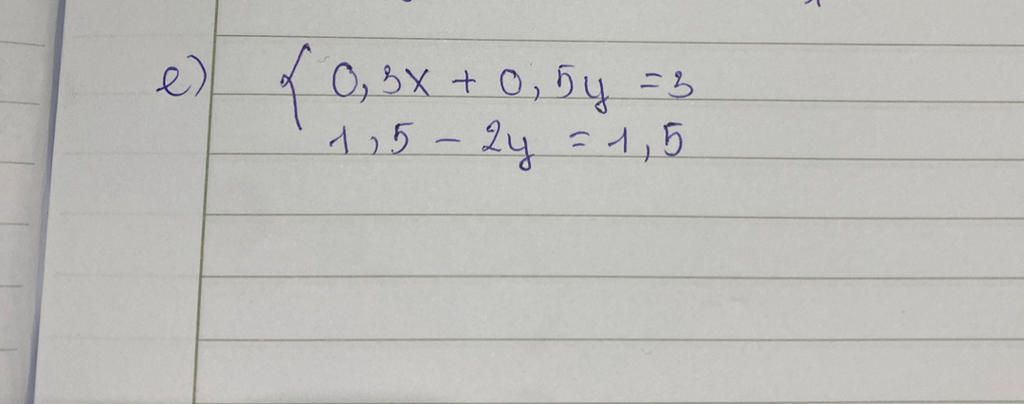 e) { 0,3x + 0,5y = 3
1,5 - 2y = 1,5